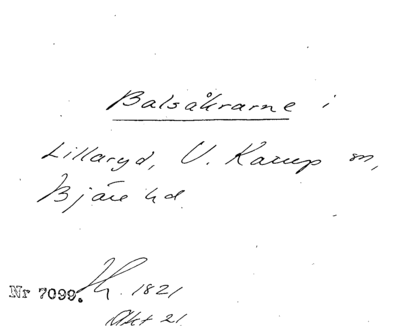 Balsåkrarne i
Lillaryd, V. Karup sn,
Bjäre hd
Nr 7099. Jh. 1821
Akt 21